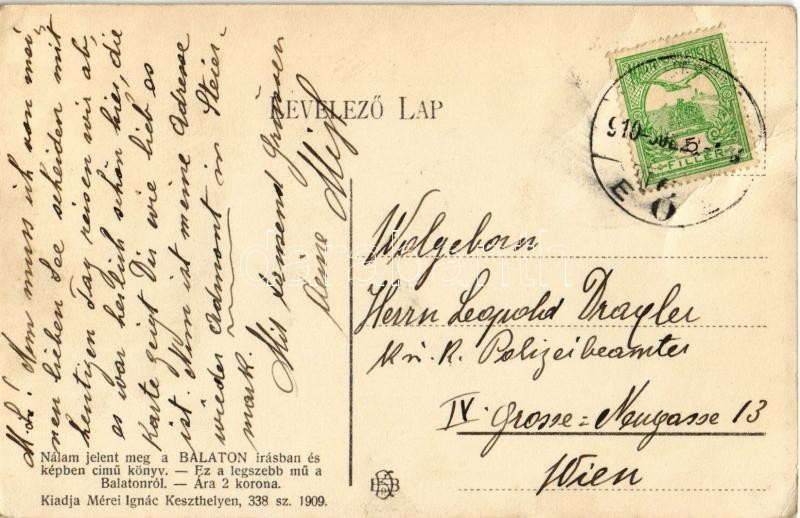 M. L.! Nun muss ich von mei-
nen lieben See scheiden mit
heutigen Tag reisen wir ab,
es war herlich schön hier, die
Karte zeigt Dir wie lieb es
ist. Nun ist meine Adresse
wieder Admont in Steier-
mark.
Mit tausend Grüssen
deine
LEVELEZŐ LAP
MAGYAR KIR. POSTA
5
FILLÉR
910
Wolgeborn
Herrn Leopold Draxler
k. u. k. Polizeibeamter
IV. Grosse=Neugasse 13
Wien
Nálam jelent meg a BALATON irásban és
képben cimű könyv. — Ez a legszebb mű a
Balatonról. — Ára 2 korona.
Kiadja Mérei Ignác Keszthelyen, 338 sz. 1909.
darabanth